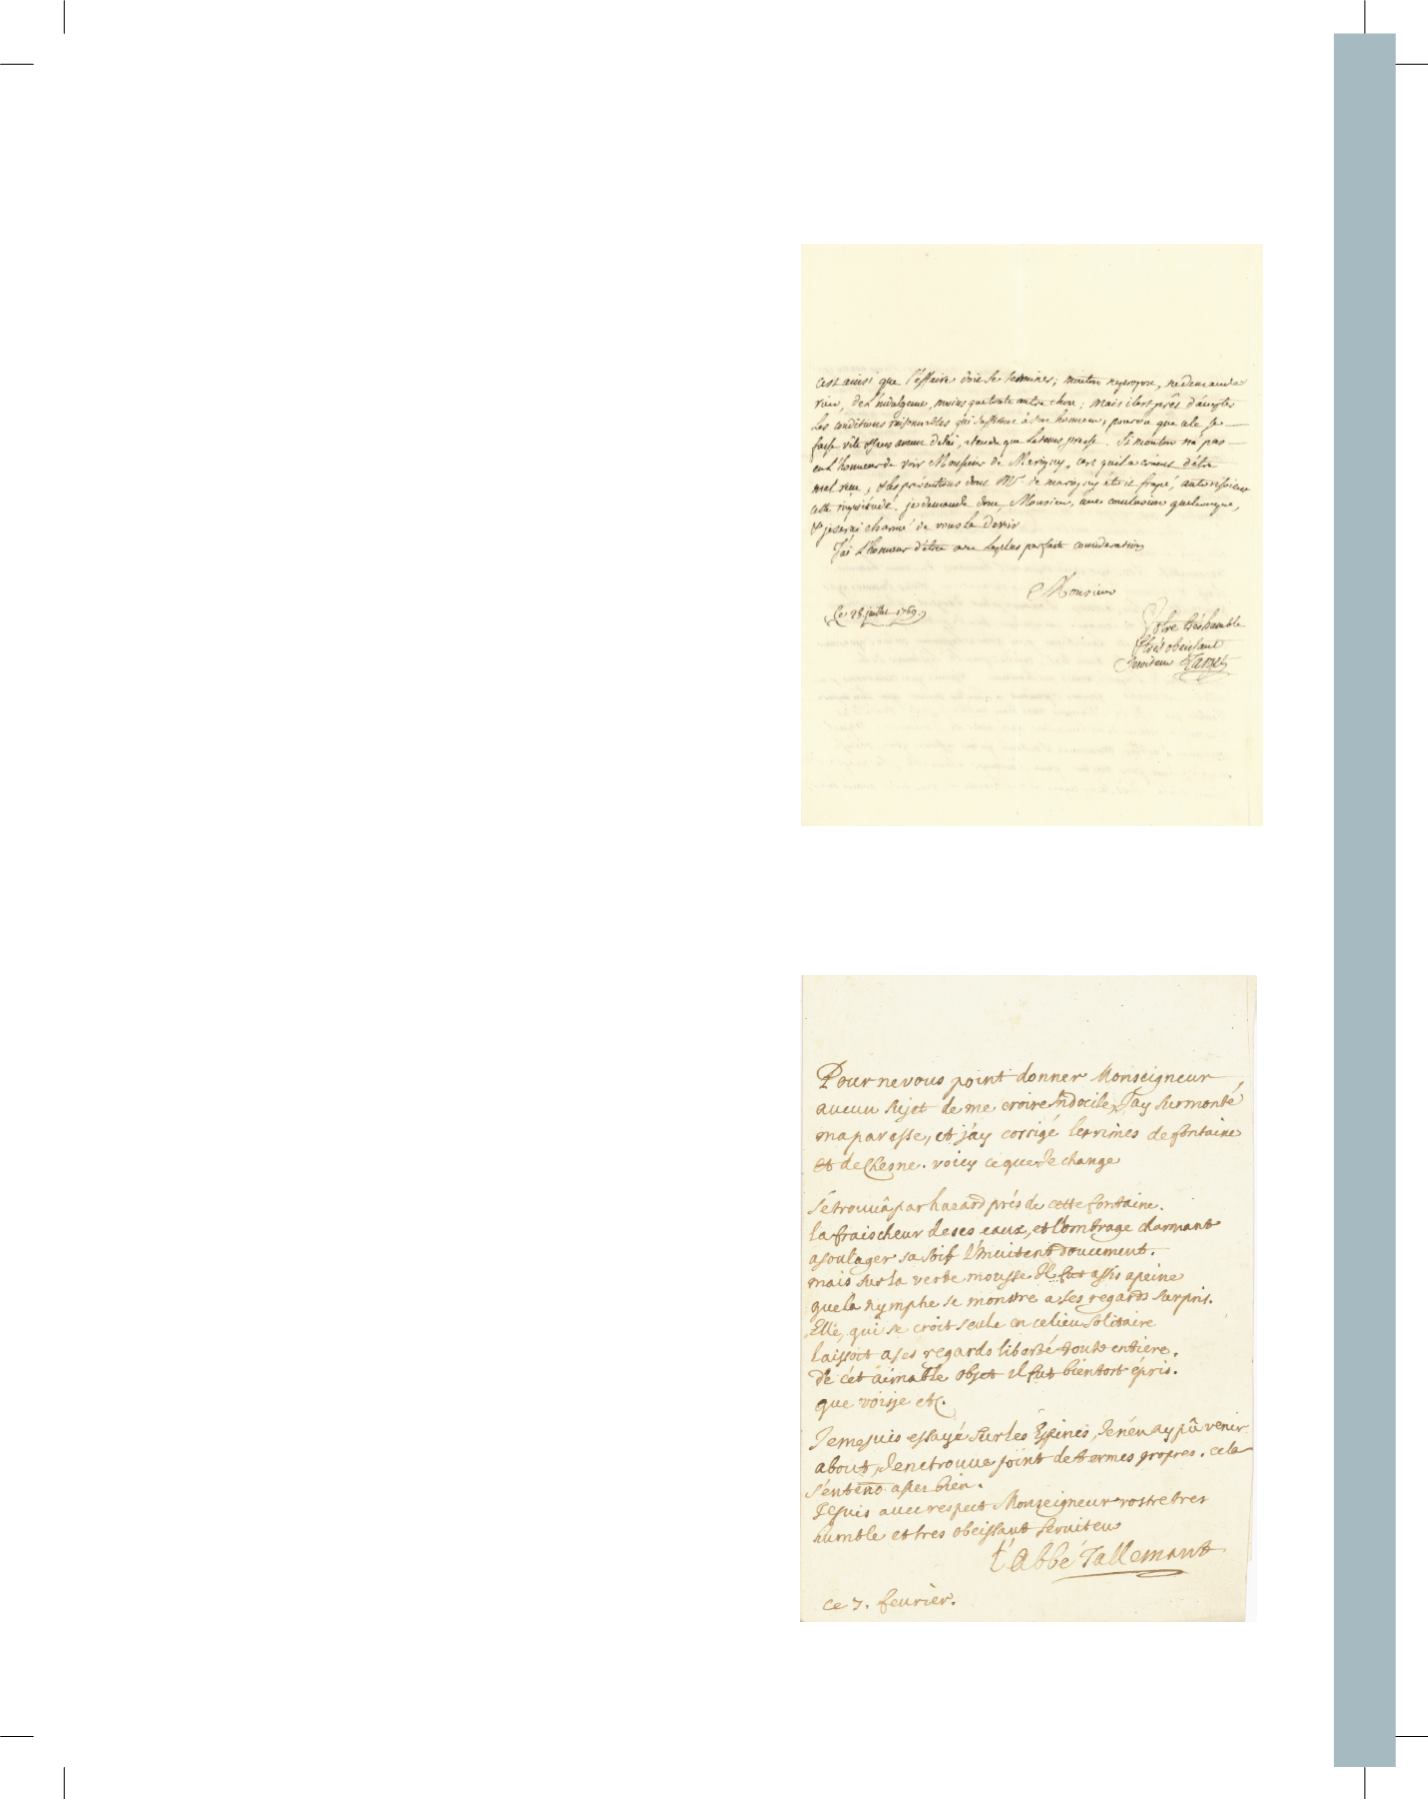 c'est ainsi que l'affaire doit se terminer; mouton ne propose, ne demande
rien, de l'indulgence, moins que toute autre chose; mais il est prêt d'accepter
les conditions raisonnables qui à son honneur, pourvu que cela se
fasse vite et sans aucun delai, attendu que le tems presse. Si mouton n'a pas
eu l'honneur de voir Monsieur de Marigny, c'est qu'il a craint d'être
mal reçu, & les préventions dont Mr. de marigny étoit frapé,
cette inquiétude. je demande donc, Monsieur, une conclusion quelconque,
& je serai charmé de vous la devoir
J'ai l'honneur d'être avec la plus parfaite consideration
Monsieur
Ce 28 juillet 1769.
Votre très humble
& très obeissant
serviteur Target
Pour ne vous point donner Monseigneur
aucun sujet de me croire Indocile, J'ay surmonté
ma paresse, et j'ay corrigé les rimes de fontaine
et de Chesne. voicy ce que Je change
Se trouua par hazard prés de cette fontaine.
la fraischeur de ses eaux, et l'ombrage charmant
a soulager sa soif l'Inuitent doucement.
mais sur la verte mousse Il fut assis a peine
que la nymphe se monstre a ses regards surpris.
Elle, qui se croit seule en ce lieu solitaire
laissoit a ses regards liberté toute entiere.
de cét aimable objet il fut bientost épris.
que voisje etc.
Je me suis essayé sur les Espines, Je n'en ay pû venir
a bout, Je ne trouue point de termes propres. cela
s'entend assez bien.
Je suis auec respect Monseigneur vostre tres
humble et tres obeissant seruiteur
l'Abbé Tallemant
ce 7. feurier.